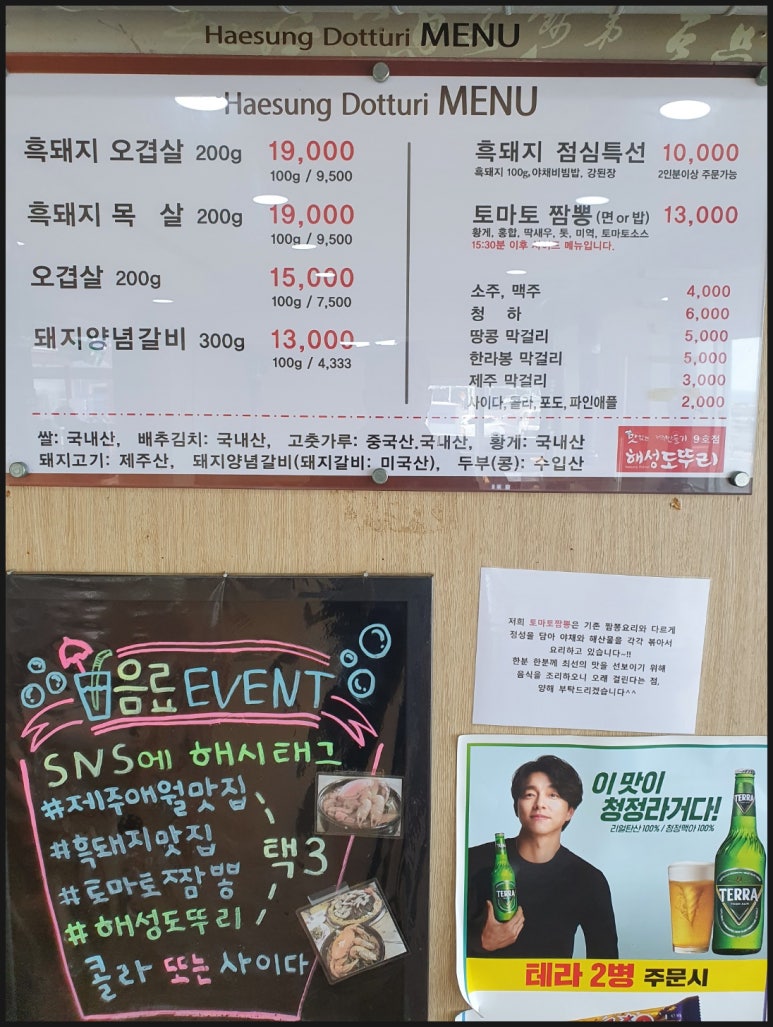 Haesung Dotturi MENU
Haesung Dotturi MENU
흑돼지 오겹살 200g 19,000
100g / 9,500
흑돼지 목 살 200g 19,000
100g / 9,500
오겹살 200g 15,000
100g / 7,500
돼지양념갈비 300g 13,000
100g / 4,333
흑돼지 점심특선 10,000
흑돼지 100g,야채비빔밥, 강된장 2인분이상 주문가능
토마토 짬뽕 (면 or 밥) 13,000
황게, 홍합, 딱새우, 톳, 미역, 토마토소스
15:30분 이후 메뉴입니다.
소주, 맥주 4,000
청 하 6,000
땅콩 막걸리 5,000
한라봉 막걸리 5,000
제주 막걸리 3,000
사이다, 콜라, 포도, 파인애플 2,000
쌀: 국내산, 배추김치: 국내산, 고춧가루: 중국산.국내산, 황게: 국내산
돼지고기: 제주산, 돼지양념갈비(돼지갈비: 미국산), 두부(콩): 수입산
9호점
해성도뚜리
저희 토마토짬뽕은 기존 짬뽕요리와 다르게
정성을 담아 야채와 해산물을 각각 볶아서
요리하고 있습니다~!!
한분 한분께 최선의 맛을 선보이기 위해
음식을 조리하오니 오래 걸린다는 점,
양해 부탁드리겠습니다^^
음료 EVENT
SNS에 해시태그
#제주애월맛집
#흑돼지맛집
#토마토짬뽕
#해성도뚜리
택3
콜라 또는 사이다
이 맛이
청정라거다!
리얼탄산 100% / 청정맥아 100%
TERRA
TERRA
TERRA
테라 2병 주문시